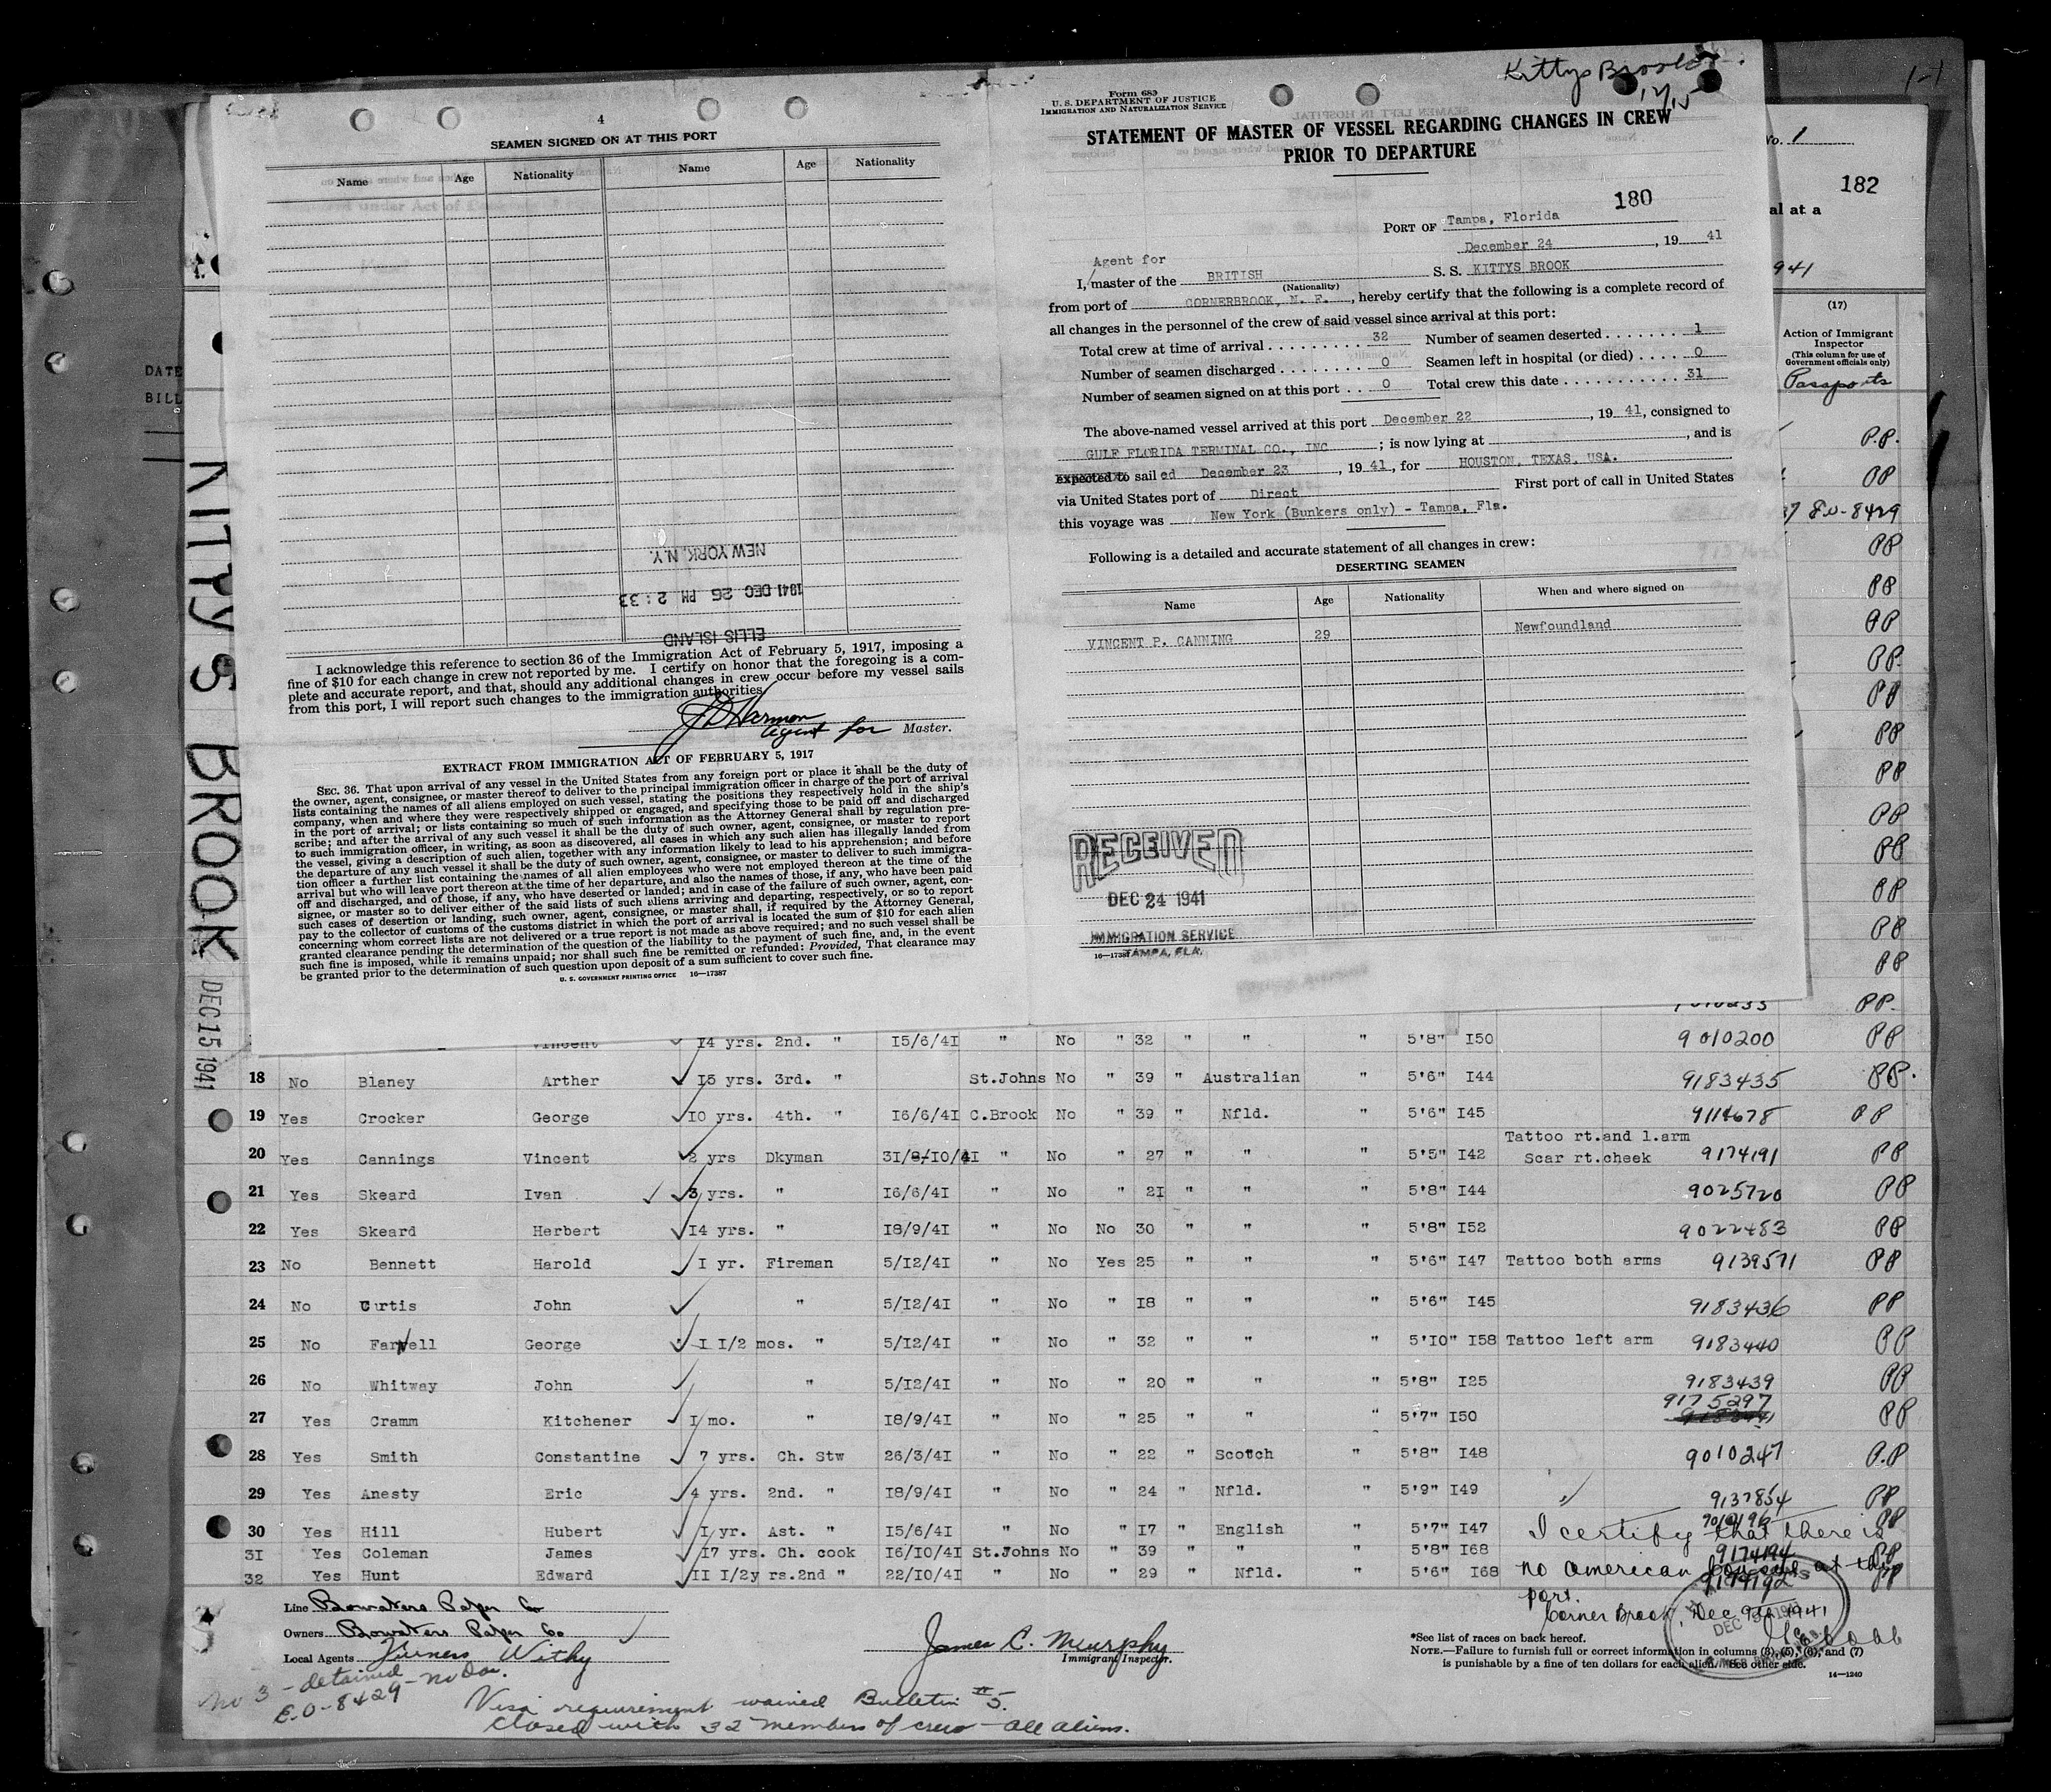 4
SEAMEN SIGNED ON AT THIS PORT
Name Age Nationality Name Age Nationality
NEW YORK, N.Y.
1941 DEC 26 PM 2:33
ELLIS ISLAND
I acknowledge this reference to section 36 of the Immigration Act of February 5, 1917, imposing a
fine of $10 for each change in crew not reported by me. I certify on honor that the foregoing is a com-
plete and accurate report, and that, should any additional changes in crew occur before my vessel sails
from this port, I will report such changes to the immigration authorities.
Harmon
agent for Master.
EXTRACT FROM IMMIGRATION ACT OF FEBRUARY 5, 1917
SEC. 36. That upon arrival of any vessel in the United States from any foreign port or place it shall be the duty of
the owner, agent, consignee, or master thereof to deliver to the principal immigration officer in charge of the port of arrival
lists containing the names of all aliens employed on such vessel, stating the positions they respectively hold in the ship's
company, when and where they were respectively shipped or engaged, and specifying those to be paid off and discharged
in the port of arrival; or lists containing so much of such information as the Attorney General shall by regulation pre-
scribe; and after the arrival of any such vessel it shall be the duty of such owner, agent, consignee, or master to report
to such immigration officer, in writing, as soon as discovered, all cases in which any such alien has illegally landed from
the vessel, giving a description of such alien, together with any information likely to lead to his apprehension; and before
the departure of any such vessel it shall be the duty of such owner, agent, consignee, or master to deliver to such immigra-
tion officer a further list containing the names of all alien employees who were not employed thereon at the time of the
arrival but who will leave port thereon at the time of her departure, and also the names of those, if any, who have been paid
off and discharged, and of those, if any, who have deserted or landed; and in case of the failure of such owner, agent, con-
signee, or master so to deliver either of the said lists of such aliens arriving and departing, respectively, or so to report
such cases of desertion or landing, such owner, agent, consignee, or master shall, if required by the Attorney General,
pay to the collector of customs of the customs district in which the port of arrival is located the sum of $10 for each alien
concerning whom correct lists are not delivered or a true report is not made as above required; and no such vessel shall be
granted clearance pending the determination of the question of the liability to the payment of such fine, and, in the event
such fine is imposed, while it remains unpaid; nor shall such fine be remitted or refunded: Provided, That clearance may
be granted prior to the determination of such question upon deposit of a sum sufficient to cover such fine.
U. S. GOVERNMENT PRINTING OFFICE 16—17387
Kittys Brook
12/15
Form 689
U. S. DEPARTMENT OF JUSTICE
IMMIGRATION AND NATURALIZATION SERVICE
STATEMENT OF MASTER OF VESSEL REGARDING CHANGES IN CREW
PRIOR TO DEPARTURE
180
PORT OF Tampa, Florida
December 24, 1941
Agent for
I, master of the BRITISH S. S. KITTYS BROOK
(Nationality)
from port of CORNERBROOK, N. F., hereby certify that the following is a complete record of
all changes in the personnel of the crew of said vessel since arrival at this port:
Total crew at time of arrival 32 Number of seamen deserted 1
Number of seamen discharged 0 Seamen left in hospital (or died) 0
Number of seamen signed on at this port 0 Total crew this date 31
The above-named vessel arrived at this port December 22, 1941, consigned to
GULF FLORIDA TERMINAL CO., INC; is now lying at , and is
expected to sailed December 23, 1941, for HOUSTON, TEXAS, USA.
via United States port of Direct First port of call in United States
this voyage was New York (Bunkers only) - Tampa, Fla.
Following is a detailed and accurate statement of all changes in crew:
DESERTING SEAMEN
Name Age Nationality When and where signed on
VINCENT P. CANNING 29 Newfoundland
RECEIVED
DEC 24 1941
IMMIGRATION SERVICE
TAMPA, FLA.
16—17387
1-1
No. 1
182
al at a
941
(17)
Action of Immigrant
Inspector
(This column for use of
Government officials only)
Passports
P.P.
PP
8429
PP
PP
PP
PP.
PP
PP
PP
PP
PP
PP
PP
PP
PP.
DATE
BILL
KITTYS BROOK DEC 15 1941
Vincent 14 yrs. 2nd. " 15/6/41 " No " 32 " " " 5'8" 150 9010200 PP
18 No Blaney Arther 15 yrs. 3rd. " St.Johns No " 39 " Australian " 5'6" 144 9183435 PP.
19 Yes Crocker George 10 yrs. 4th. " 16/6/41 C.Brook No " 39 " Nfld. " 5'6" 145 9114678 PP
20 Yes Cannings Vincent 2 yrs Dkyman 31/8/10/41 " No " 27 " " " 5'5" 142 Tattoo rt.and l.arm Scar rt.cheek 9174191 PP
21 Yes Skeard Ivan 3 yrs. " 16/6/41 " No " 21 " " " 5'8" 144 9025720 PP
22 Yes Skeard Herbert 14 yrs. " 18/9/41 " No No 30 " " " 5'8" 152 9022483 PP
23 No Bennett Harold 1 yr. Fireman 5/12/41 " No Yes 25 " " " 5'6" 147 Tattoo both arms 9139571 PP
24 No Curtis John " 5/12/41 " No " 18 " " " 5'6" 145 9183436 PP
25 No Farwell George 1 1/2 mos. " 5/12/41 " No " 32 " " " 5'10" 158 Tattoo left arm 9183440 PP
26 No Whitway John " 5/12/41 " No " 20 " " " 5'8" 125 9183439 PP
27 Yes Cramm Kitchener 1 mo. " 18/9/41 " No " 25 " " " 5'7" 150 9175297 PP
28 Yes Smith Constantine 7 yrs. Ch. Stw 26/3/41 " No " 22 " Scotch " 5'8" 148 9010247 P.P
29 Yes Anesty Eric 4 yrs. 2nd. " 18/9/41 " No " 24 " Nfld. " 5'9" 149 9137854 PP
30 Yes Hill Hubert 1 yr. Ast. " 15/6/41 " No " 17 " English " 5'7" 147 PP
31 Yes Coleman James 17 yrs. Ch. cook 16/10/41 St.Johns No " 39 " " " 5'8" 168 9174194 PP
32 Yes Hunt Edward 11 1/2y rs.2nd " 22/10/41 " No " 29 " Nfld. " 5'6" 168 9174192 PP
I certify that there is
no American Consul at this
port.
Corner Brook, Dec 1941
Line Bowaters Paper Co
Owners Bowaters Paper Co
Local Agents Furness Withy
James C. Murphy
Immigrant Inspector.
*See list of races on back hereof.
NOTE.—Failure to furnish full or correct information in columns (3), (5), (6), and (7)
is punishable by a fine of ten dollars for each alien. See other side.
14—1240
No 3 - detained
E.O-8429-no Doc.
Visa requirement waived Bulletin #5.
Closed with 32 members of crew - all aliens.